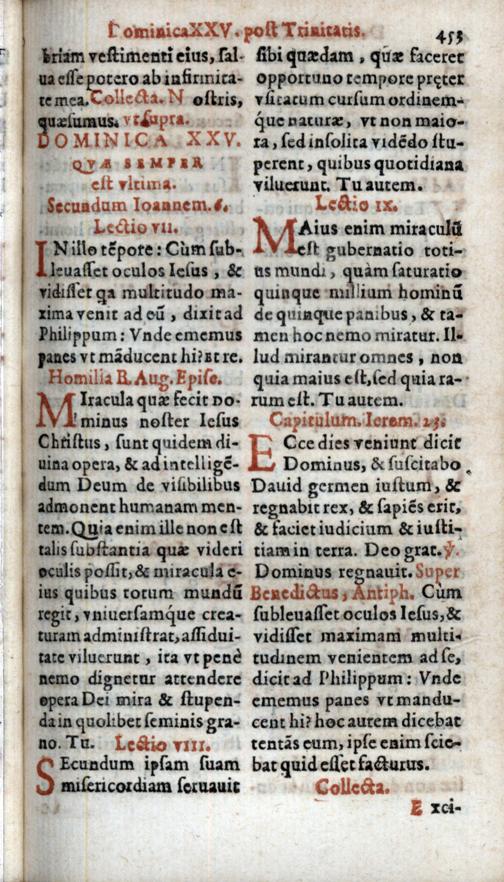 Dominica XXV. post Trinitatis.
453
briam vestimenti eius, sal-
ua esse potero ab infirmita-
te mea. Collecta. N ostris,
quæsumus. vt supra.
DOMINICA XXV.
QVÆ SEMPER
est vltima.
Secundum Ioannem. 6.
Lectio vii.
IN illo tẽpore: Cùm sub-
leuasset oculos Iesus, &
vidisset qa multitudo ma-
xima venit ad eũ, dixit ad
Philippum: Vnde ememus
panes vt mãducent hi? Et re.
Homilia B. Aug. Episc.
MIracula quæ fecit Do-
minus noster Iesus
Christus, sunt quidem di-
uina opera, & ad intelligẽ-
dum Deum de visibilibus
admonent humanam men-
tem. Quia enim ille non est
talis substantia quæ videri
oculis possit, & miracula e-
ius quibus totum mundũ
regit, vniuersamq́ue crea-
turam administrat, assidui-
tate viluerunt, ita vt penè
nemo dignetur attendere
opera Dei mira & stupen-
da in quolibet seminis gra-
no. Tu. Lectio viii.
SEcundum ipsam suam
misericordiam seruauit
sibi quædam, quæ faceret
opportuno tempore pręter
vsitatum cursum ordinem-
q́ue naturæ, vt non maio-
ra, sed insolita vidẽdo stu-
perent, quibus quotidiana
viluerunt. Tu autem.
Lectio ix.
MAius enim miraculũ
est gubernatio toti-
us mundi, quàm saturatio
quinque millium hominũ
de quinque panibus, & ta-
men hoc nemo miratur. Il-
lud mirantur omnes, non
quia maius est, sed quia ra-
rum est. Tu autem.
Capitulum. Ierem. 23.
ECce dies veniunt dicit
Dominus, & suscitabo
Dauid germen iustum, &
regnabit rex, & sapiẽs erit,
& faciet iudicium & iusti-
tiam in terra. Deo grat. ℣.
Dominus regnauit. Super
Benedictus, Antiph. Cùm
subleuasset oculos Iesus, &
vidisset maximam multi-
tudinem venientem ad se,
dicit ad Philippum: Vnde
ememus panes vt mandu-
cent hi? hoc autem dicebat
tentãs eum, ipse enim scie-
bat quid esset facturus.
Collecta.
E xci-